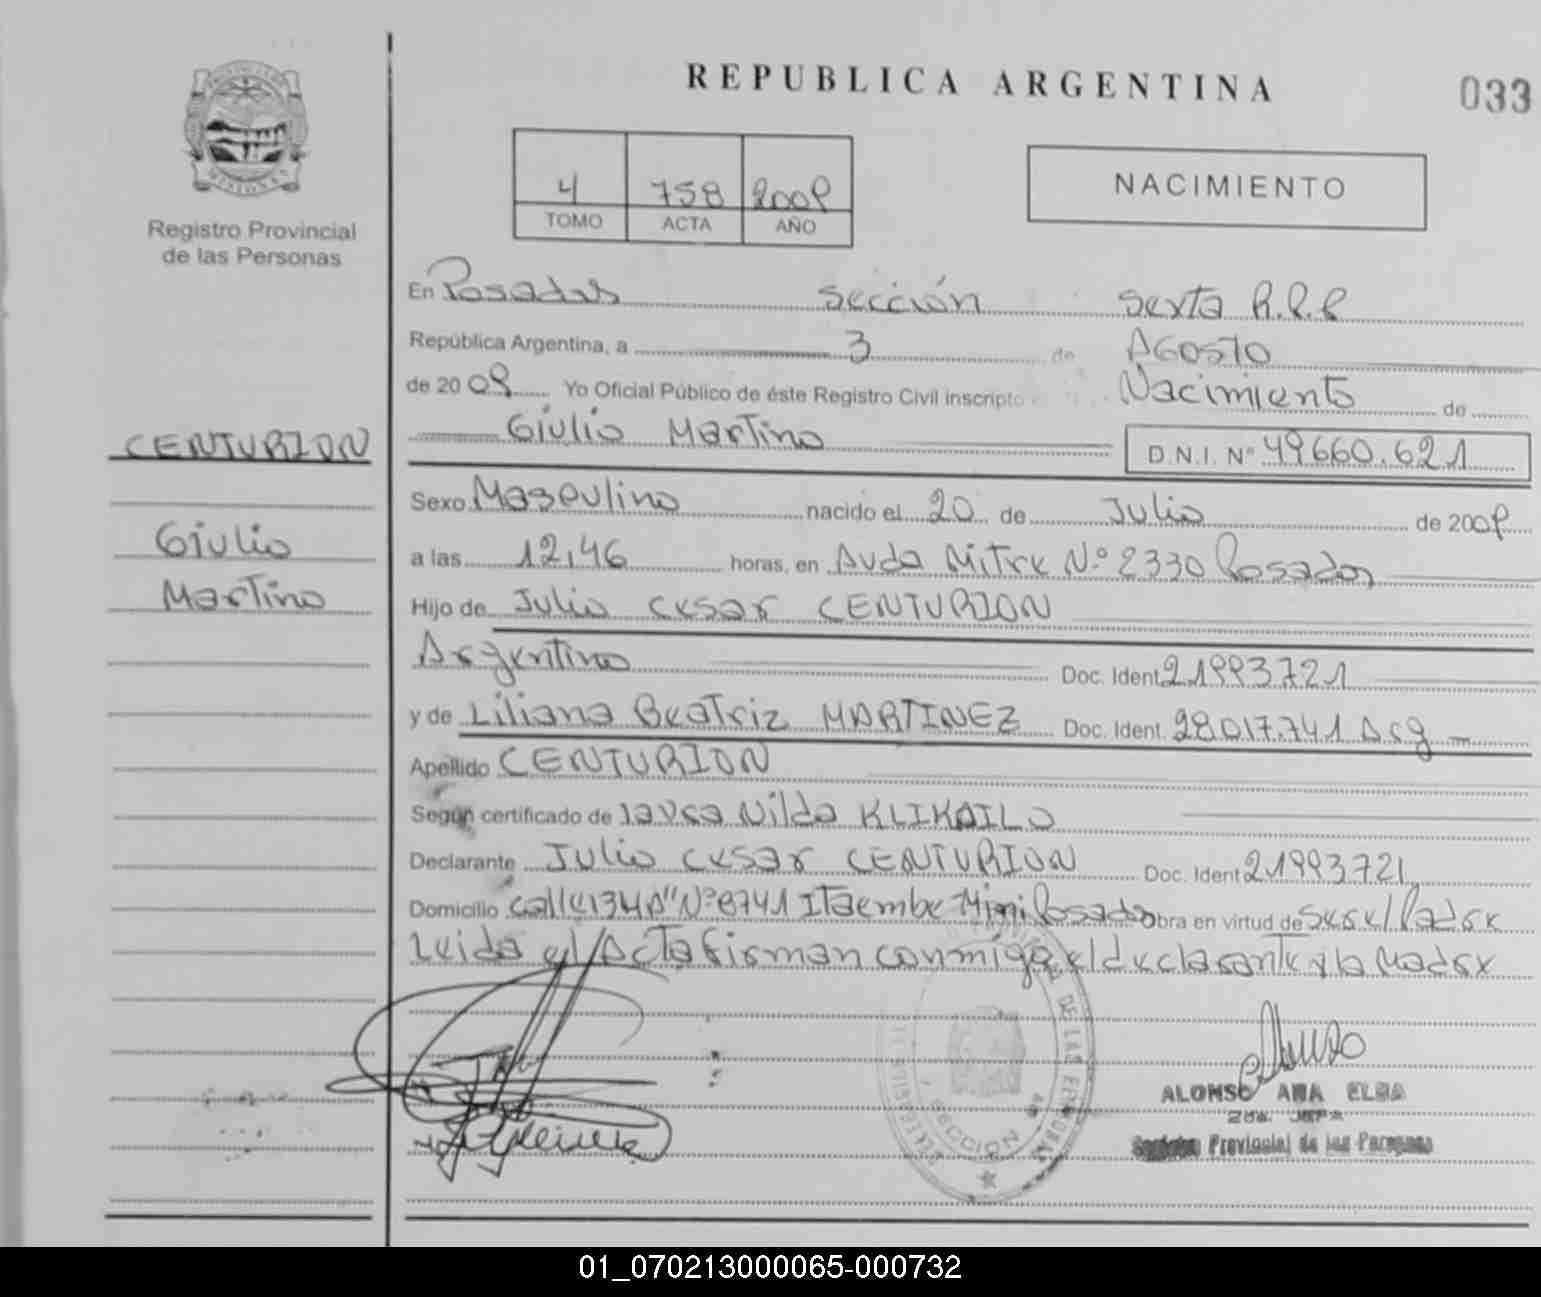 REPUBLICA ARGENTINA
033
MISIONES
Registro Provincial
de las Personas
4 758 2009
TOMO ACTA AÑO
NACIMIENTO
En Posadas Sección Sexta R.P.P
República Argentina, a 3 de AGOSTO
de 20 09 Yo Oficial Público de éste Registro Civil inscripto Nacimiento de
Giulio Martino
D.N.I. Nº 49660.621
CENTURION
Giulio
Martino
Sexo Masculino nacido el 20 de Julio de 2009
a las 12,46 horas, en Avda Mitre Nº 2330 Posadas
Hijo de Julio Cesar CENTURION
Argentino Doc. Ident 21993721
y de Liliana Beatriz MARTINEZ Doc. Ident. 28017.741 Arg
Apellido CENTURION
Según certificado de Laura Nilda KLIKAILO
Declarante Julio Cesar CENTURION Doc. Ident 21993721
Domicilio Calle 134 A" Nº 8741 Itaembe Mini Posadas Obra en virtud de Ser el Padre
Leida el Acta firman conmigo el declarante y la Madre
SECCION
DE LAS PERSONAS
ALONSO ANA ELBA
2da. JEFA
Provincial de las Personas
01_070213000065-000732